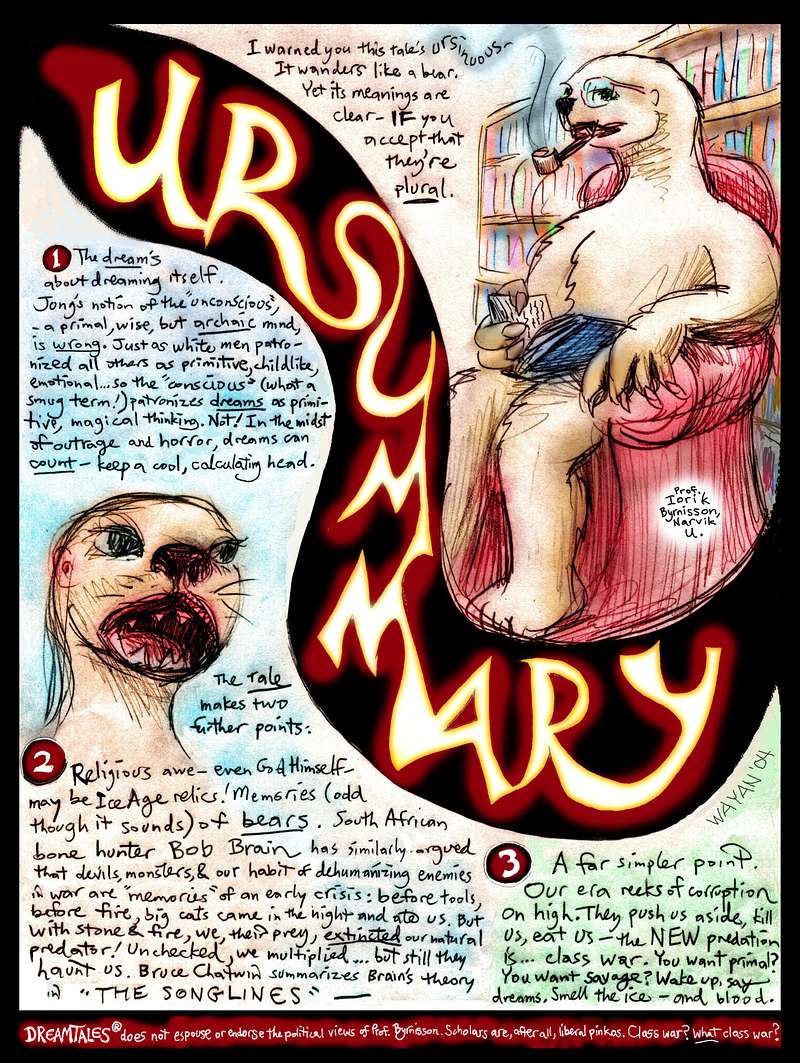 I warned you this tale's ursinuous-
It wanders like a bear.
Yet its meanings are
clear - IF you
accept that
they're
plural.
URSUMMARY
1 The dream's
about dreaming itself.
Jung's notion of the "unconscious",
- a primal, wise, but archaic mind,
is wrong. Just as white men patro-
nized all others as primitive, childlike,
emotional... so the "conscious" (what a
smug term!) patronizes dreams as primi-
tive, magical thinking. Not! In the midst
of outrage and horror, dreams can
count - keep a cool, calculating head.
Prof.
Iorik
Byrnisson,
Narvik
U.
The tale
makes two
further points:
2 Religious awe - even God Himself -
may be Ice Age relics! Memories (odd
though it sounds) of bears. South African
bone hunter Bob Brain has similarly argued
that devils, monsters, & our habit of dehumanizing enemies
in war are "memories" of an early crisis: before tools,
before fire, big cats came in the night and ate us. But
with stone & fire, we, their prey, extincted our natural
predator! Unchecked, we multiplied... but still they
haunt us. Bruce Chatwin summarizes Brain's theory
in "THE SONGLINES" -
WAYAN '04
3 A far simpler point.
Our era reeks of corruption
on high. They push us aside, kill
us, eat us - the NEW predation
is... class war. You want primal?
You want savage? Wake up, say
dreams. Smell the ice - and blood.
DREAMTALES® does not espouse or endorse the political views of Prof. Byrnisson. Scholars are, after all, liberal pinkos. Class war? What class war?